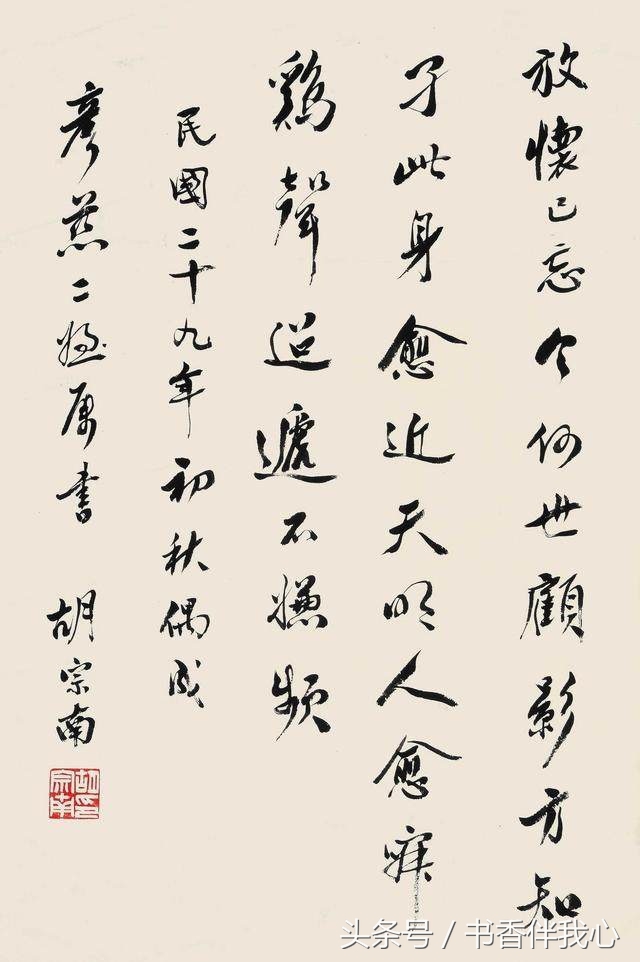 放懷已忘今何世顧影方知
孑此身愈近天明人愈寐
鷄聲迢遞不嫌頻
民國二十九年初秋偶成
彥二屬書 胡宗南
胡印宗南
头条号 / 书香伴我心